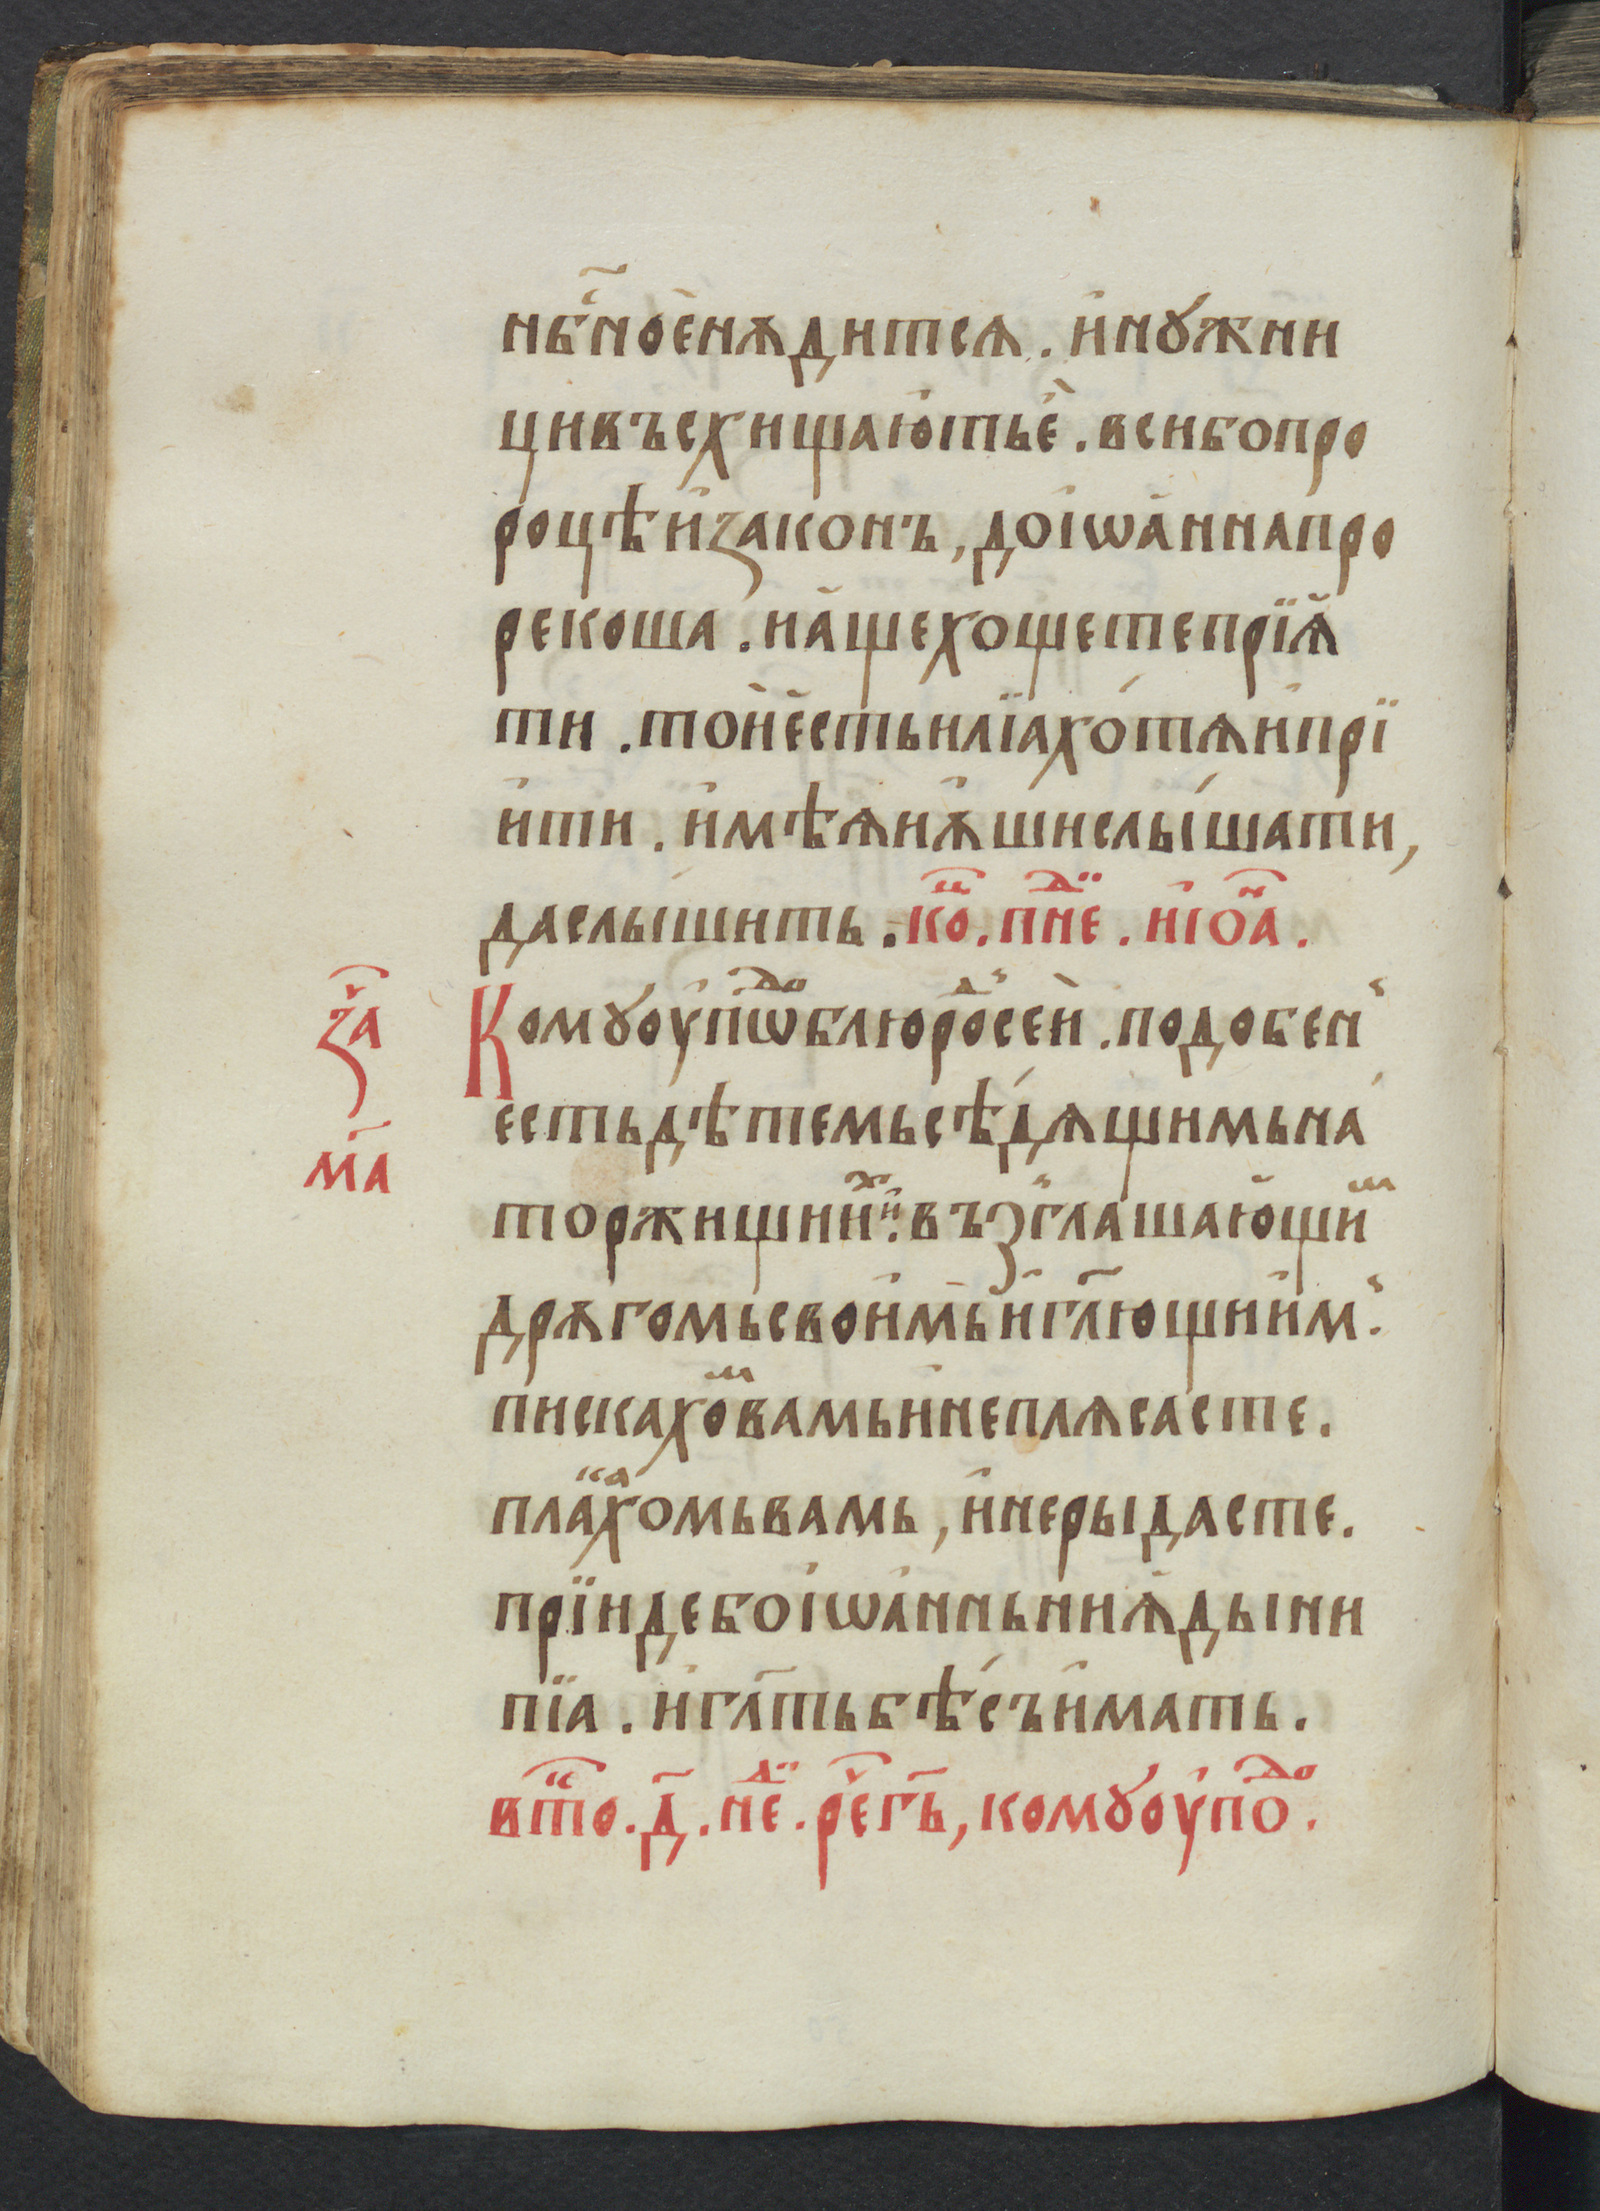 нбⷭ҇ноѐнѫдитсѧ . и҆нꙋжни
цивъсхищаю҆тьѐ . вси бо про
роцѣ и҆ законъ , до і҆ѡа҆нна про
рекоша . и҆ а҆ще хощете прїѧ҆
ти . то́и҆ е҆сть илїа хотѧи прї
и҆ти . и҆мѣѧи ѫ҆ши слы́шати ,
да слы́шить . ко́ⷰ . пⷣне . и҆ і҆оⷩ҇а .
за҇ⷱ
ма҃
Комꙋ ᲂу҆пⷪ҇ⷣѡблю роⷣсе́й . подобен
есть дѣтемь сѣдѧщимь на
торжищии҆ⷯ . и҆ възглашаю҆щиⷨ
дрѫгомь свои҆мь и҆ гл҃ющии҆м .
пискахоⷨ вамь и҆ не плѧсасте .
плаⷦ҇ахомь вамь , и҆ не рыдасте .
прїиде бо і҆ѡа҆ннь ни ꙗ҆ды ни
пїа . и҆ гл҃ть бѣсъ и҆мать .
втоⷬ . д҃ . не҇ⷣ . реⷱ҇ гь҃ , комꙋ ᲂу҆поⷣ .